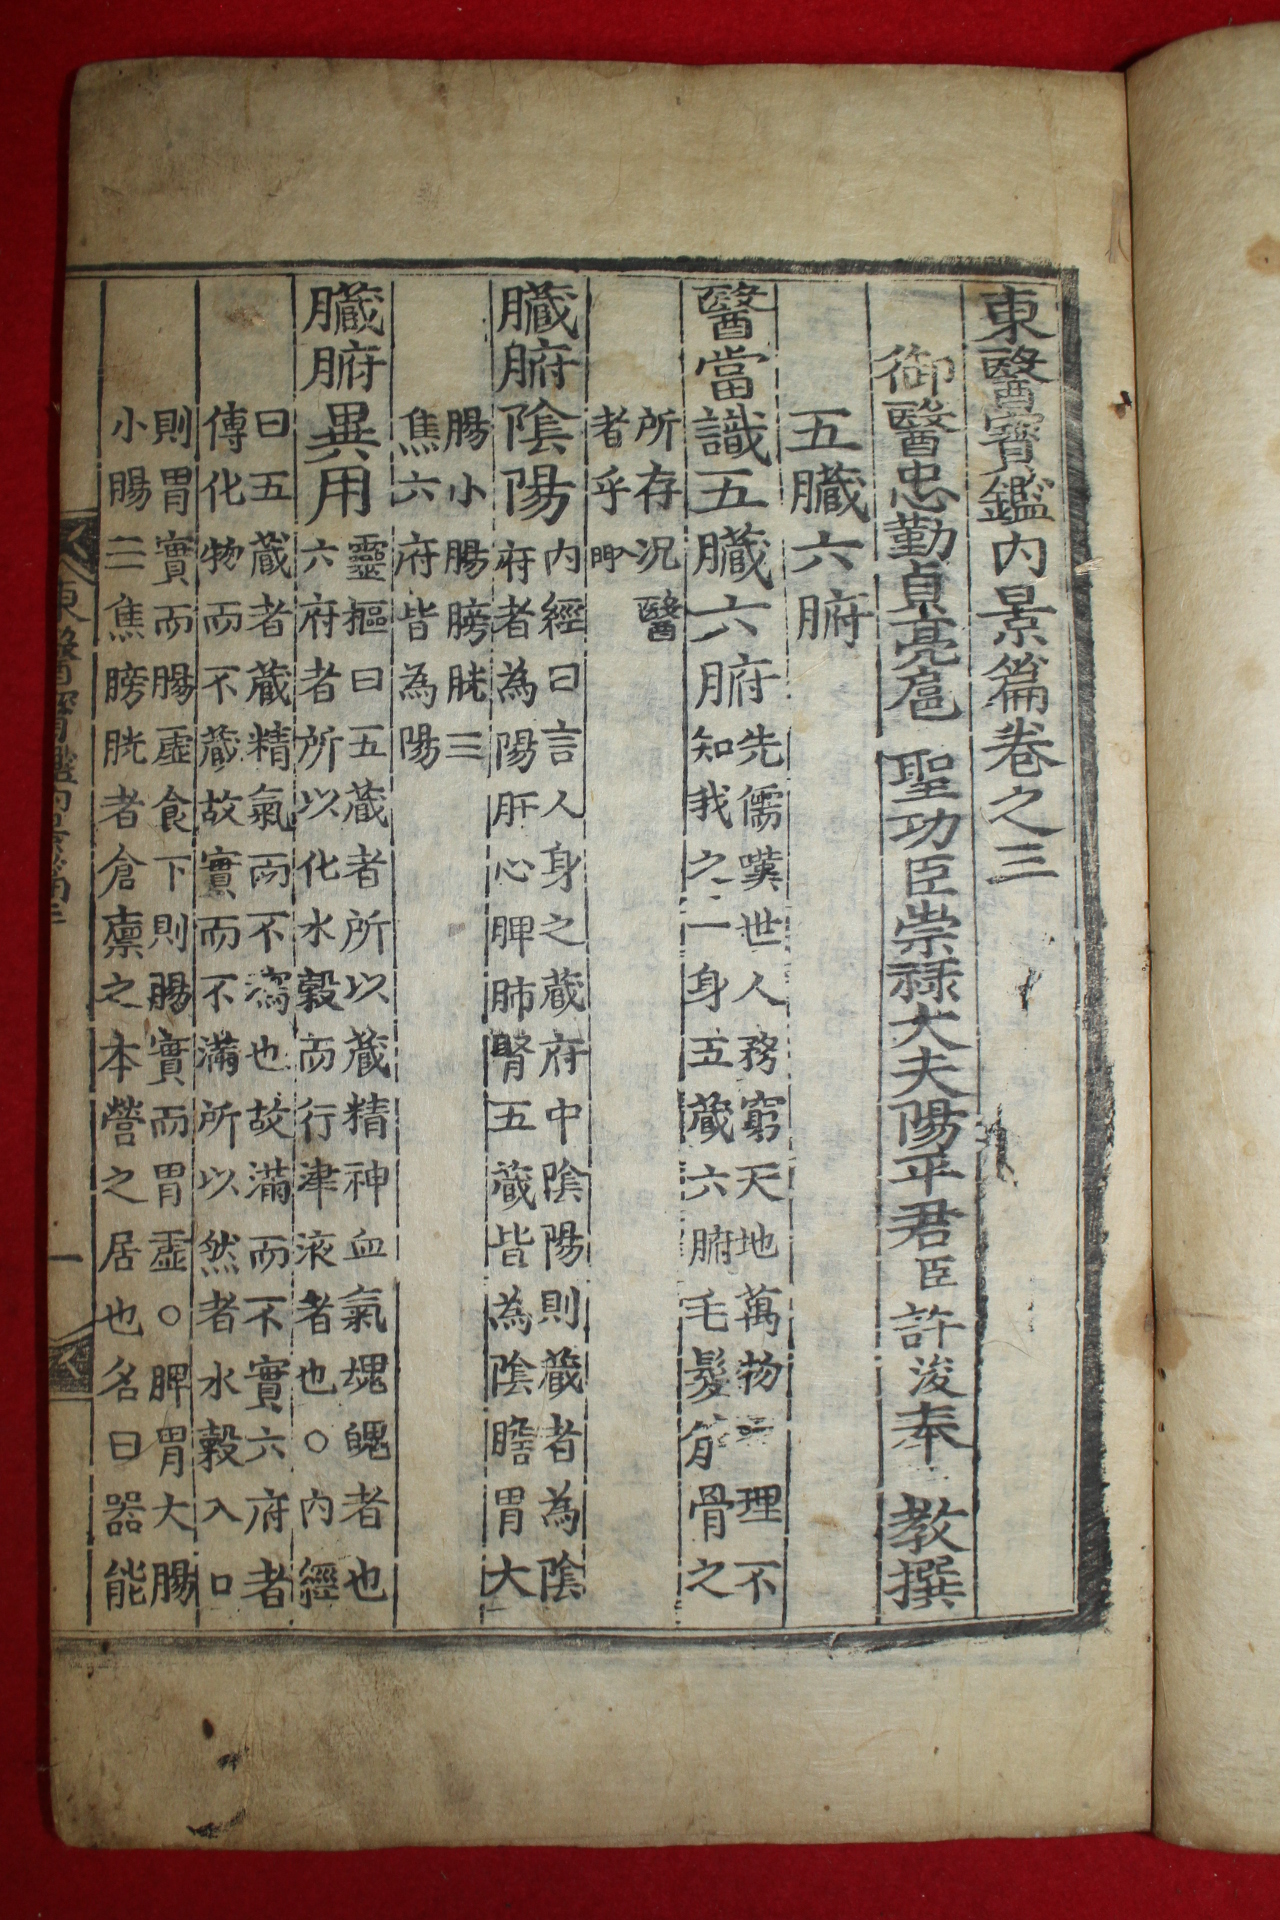 東醫寶鑑內景篇卷之三
御醫忠勤貞亮扈 聖功臣崇祿大夫陽平君臣許浚奉 教撰
五臟六腑
醫當識五臟六腑
先儒嘆世人務窮天地萬物理不
知我之一身五藏六腑毛髮筋骨之
所存况醫
者乎
臟腑陰陽
內經曰言人身之藏府中陰陽則藏者為陰
府者為陽肝心脾肺腎五藏皆為陰膽胃大
腸小腸膀胱三
焦六府皆為陽
臟腑異用
靈樞曰五藏者所以藏精神血氣魂魄者也
六府者所以化水穀而行津液者也○內經
曰五藏者藏精氣而不瀉也故滿而不實六府者
傳化物而不藏故實而不滿所以然者水穀入口
則胃實而腸虛食下則腸實而胃虛○脾胃大腸
小腸三焦膀胱者倉廩之本營之居也名曰器能
東醫寶鑑內景篇三
一